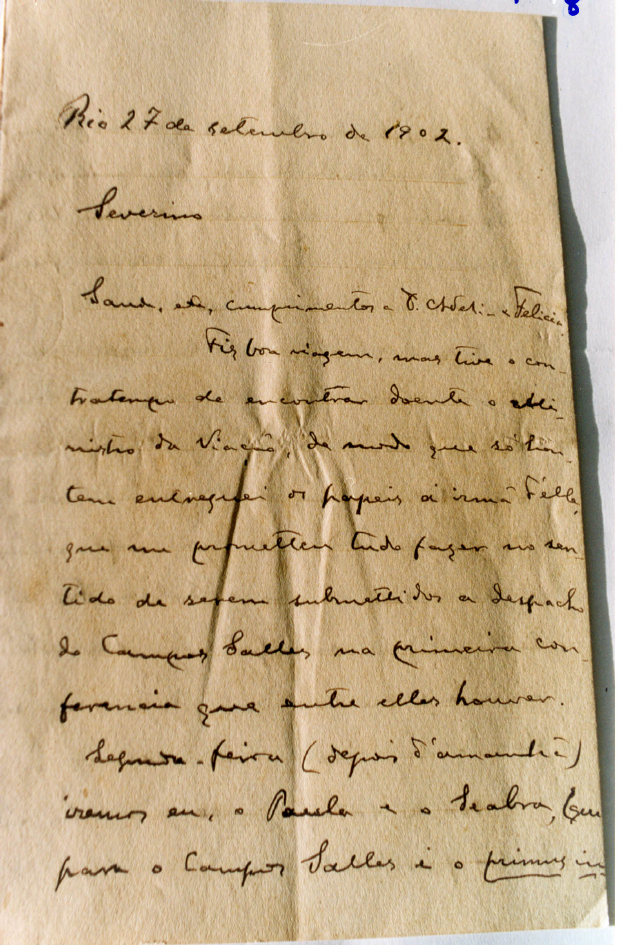 Rio 27 de setembro de 1902.
Severino
Saude, etc, cumprimentos a D. e Felicia.
Fiz boa viagem, mas tive o con-
tratempo de encontrar doente o Mi-
nistro da Viação, de modo que só hon-
tem entreguei os papeis á irmã d'elle,
que me prometteu tudo fazer no sen-
tido de serem submettidos a despacho
do Campos Salles na primeira con-
ferencia que entre elles houver.
Segunda-feira (depois d'amanhã)
iremos eu, o Paula e o Seabra, (que
para o Campos Salles é o primus in-